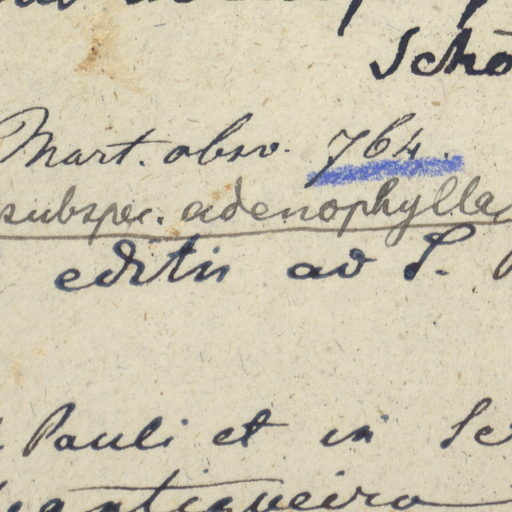 Scho
Mart. obsv. 764.
subspec. adenophylla
editis ad S.
Pauli et in